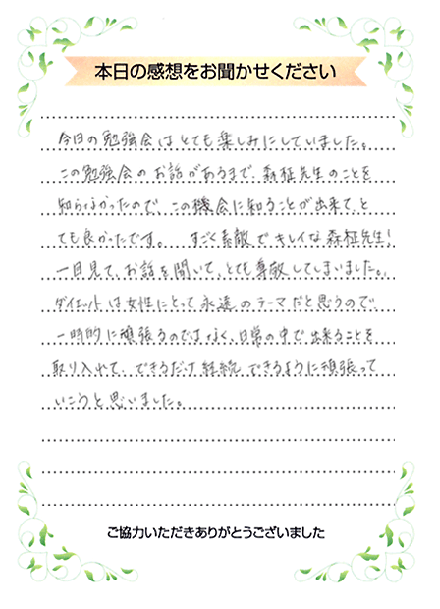 本日の感想をお聞かせください
今日の勉強会はとても楽しみにしていました。
この勉強会のお話があるまで、森柾先生のことを
知らなかったので、この機会に知ることが出来て、と
ても良かったです。 すごく素敵で、キレイな森柾先生!
一目見て、お話を聞いて、とても尊敬してしまいました。
ダイエットは女性にとって永遠のテーマだと思うので、
一時的に頑張るのではなく、日常の中で出来ることを
取り入れて、できるだけ継続できるように頑張って
いこうと思いました。
ご協力いただきありがとうございました